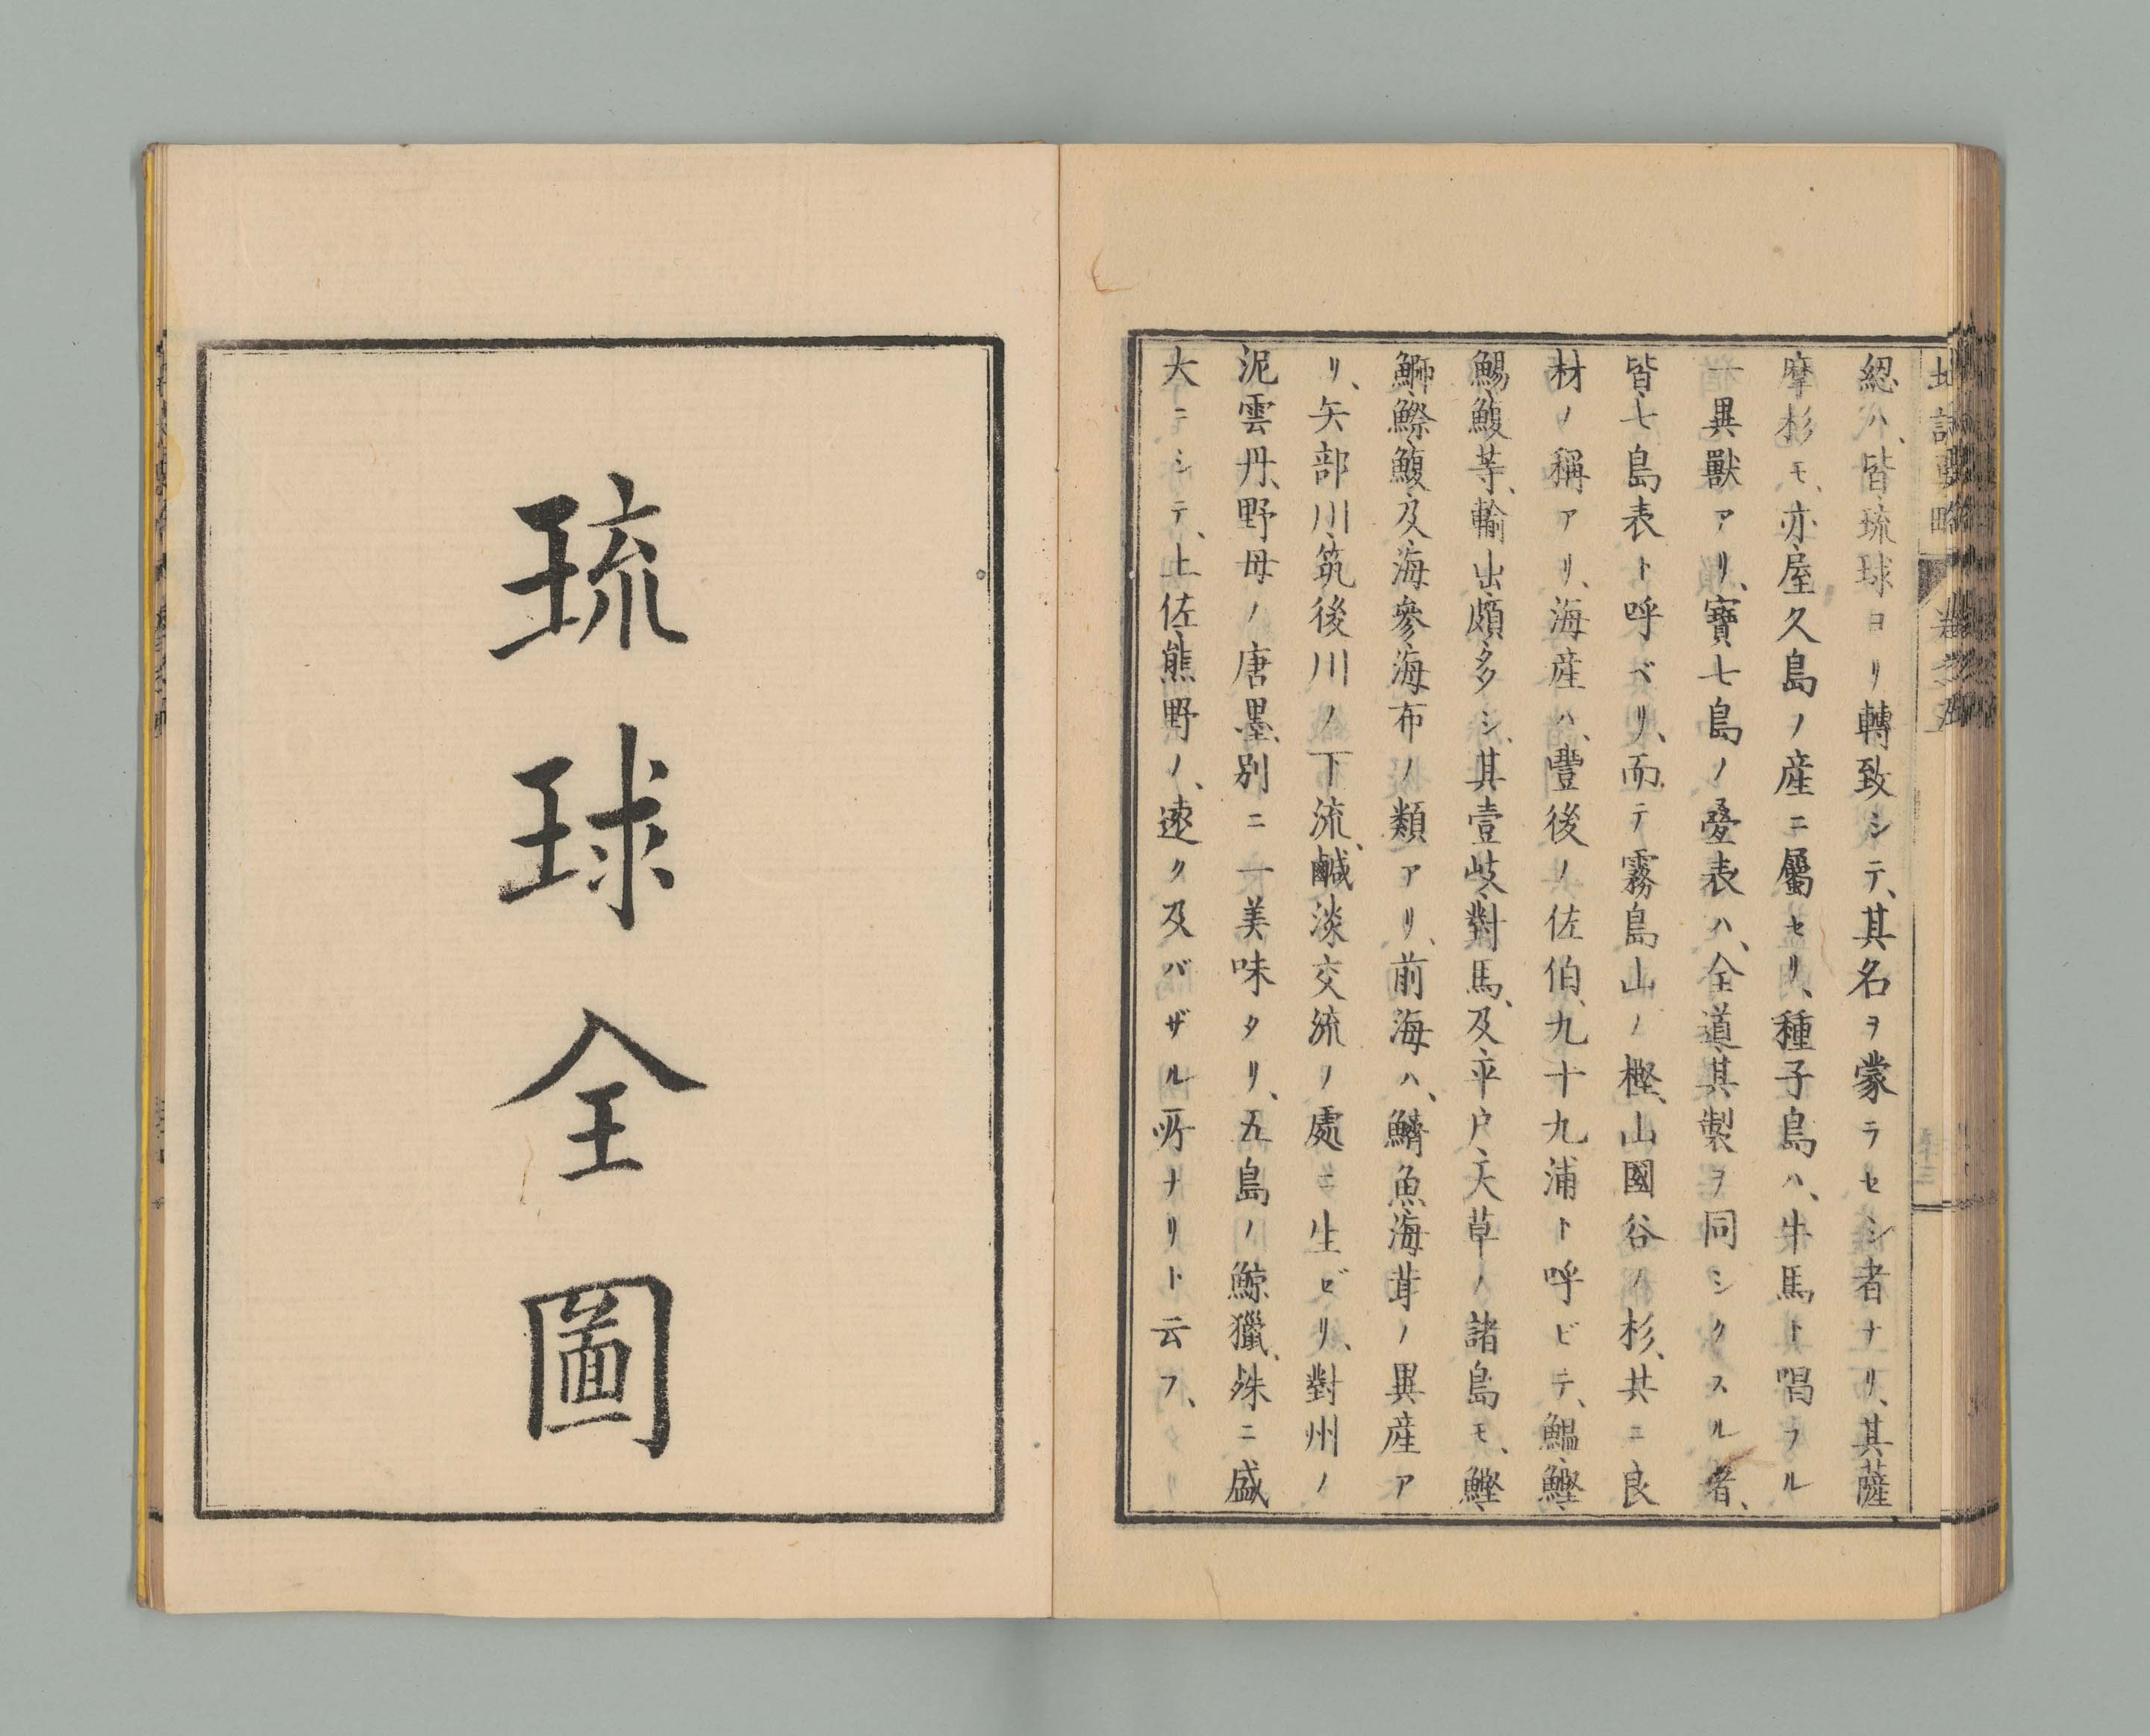 總ハ、皆琉球ヨリ轉致シテ、其名ヲ蒙ラセシ者ナリ、其薩
摩杉モ、亦屋久島ノ産ニ屬セリ、種子島ハ、牛馬ト唱フル
一異獸アリ、寶七島ノ疊表ハ、全道其製ヲ同シクスル者、
皆七島表ト呼ベリ、而テ霧島山ノ樫、山國谷ノ杉、共ニ良
材ノ稱アリ、海産ハ、豐後ノ佐伯、九十九浦ト呼ビテ、鰮鰹
鯣鰒等、輸出頗多シ、其壹岐對馬、及平戸天草ノ諸島モ、鰹
鰤鰶鰒及海參海布ノ類アリ、前海ハ、鱭魚海茸ノ異産ア
リ、矢部川筑後川ノ下流、鹹淡交流ノ處ニ生ビリ、對州ノ
泥雲丹、野母ノ唐墨、別ニ一美味タリ、五島ノ鯨獵、殊ニ盛
大ニシテ、土佐熊野ノ、遠ク及バザル所ナリト云フ、
琉球全圖